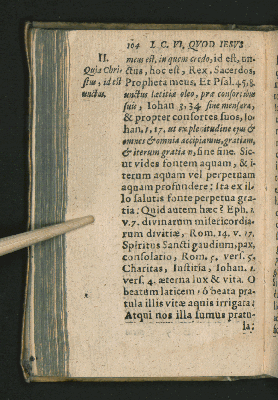 104 L. C. VI, QUOD IESUS
II.
Quia Chri-
stus, id est
unctus.
meus est, in quem credo, id est, un-
ctus, hoc est, Rex, Sacerdos,
Propheta meus, Et Psal. 45, 8.
unctus lætitiæ oleo, præ consortibus
suis, Iohan 3, 34 sine mensura,
& propter consortes suos, Io-
han. 1, 17. ut ex plenitudine ejus &
omnes & omnia accipiamus, gratiam,
& iterum gratia n, sine fine. Sic-
ut vides fontem aquam, & i-
terum aquam vel perpetuam
aquam profundere; Ita ex il-
lo salutis fonte perpetua gra-
tia: Quid autem hæc? Eph. 2.
v. 7. divinarum misericordia-
rum divitiæ, Rom, 14. v. 17.
Spiritus Sancti gaudium, pax,
consolatio, Rom, 5. vers. 5.
Charitas, Iustitia, Iohan. 1.
vers. 4. æterna lux & vita. O
beatum laticem, ô beata pra-
tula illis vitæ aquis irrigata:
Atqui nos illa sumus pratu-
la;